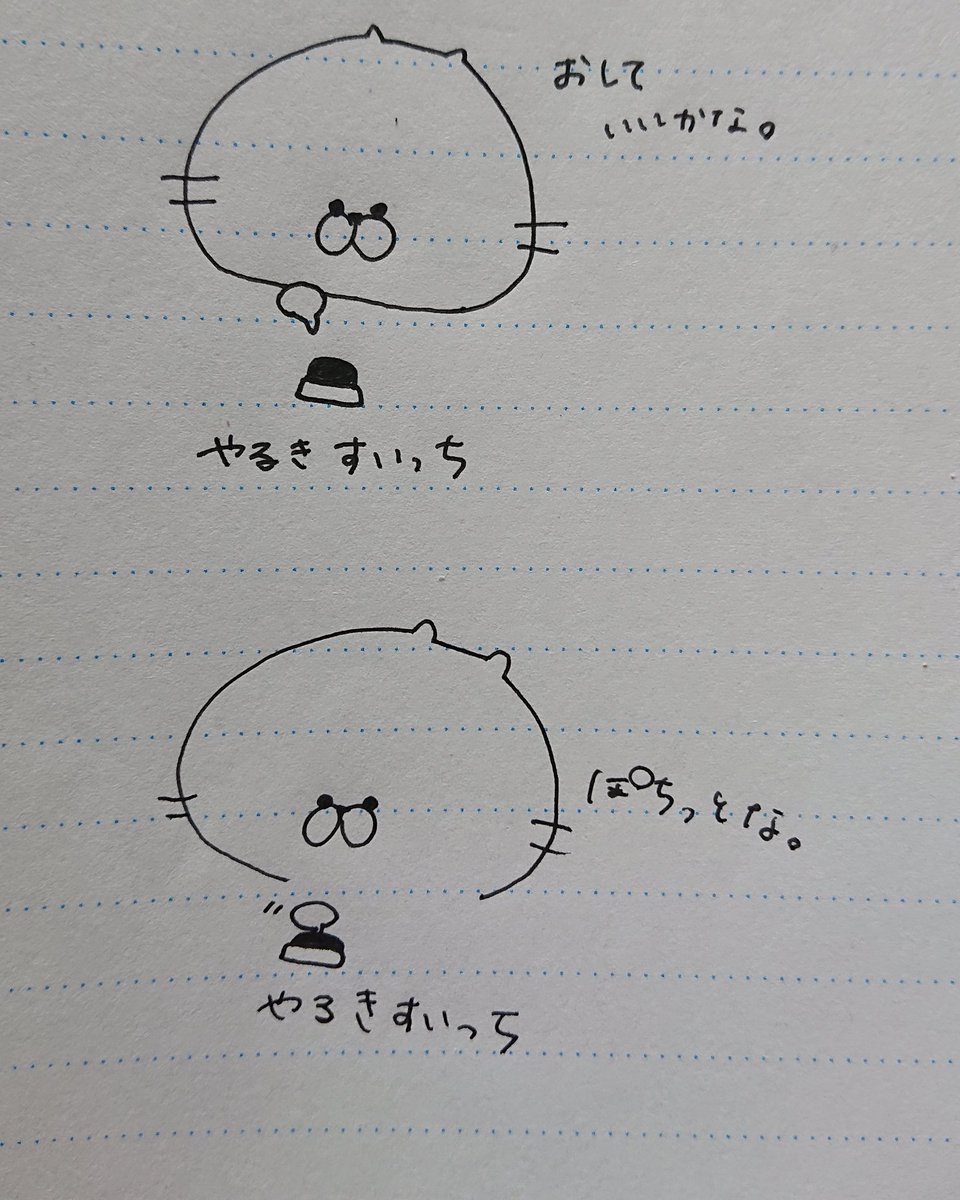 おして
いいかな。
やるきすいっち
ぽちっとな。
やるきすいっち